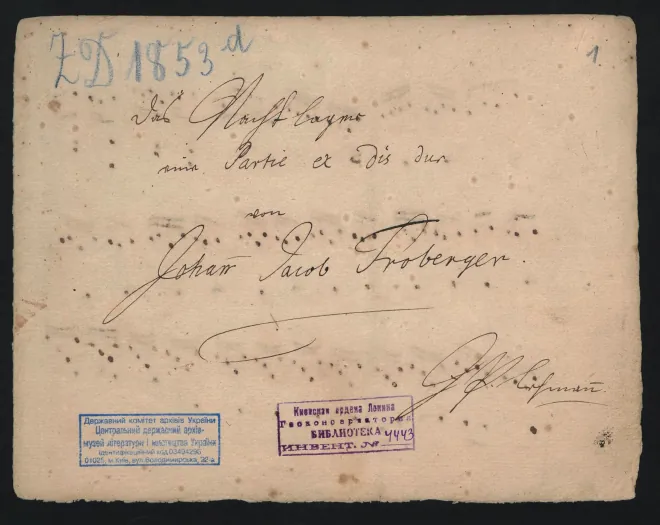 ZD 1853 d
1.
Das Nacht Lager
eine Partie ex dis dur
von
Johan̄ Jacob Froberger.
Lehman̄
Державний комітет архівів України
Центральний державний архів-
музей літератури і мистецтва України
ідентифікаційний код 03494296
01025, м.Київ, вул.Володимирська, 22-а
Киевская ордена Ленина
Госконсерватория
БИБЛИОТЕКА
ИНВЕНТ. № 4443